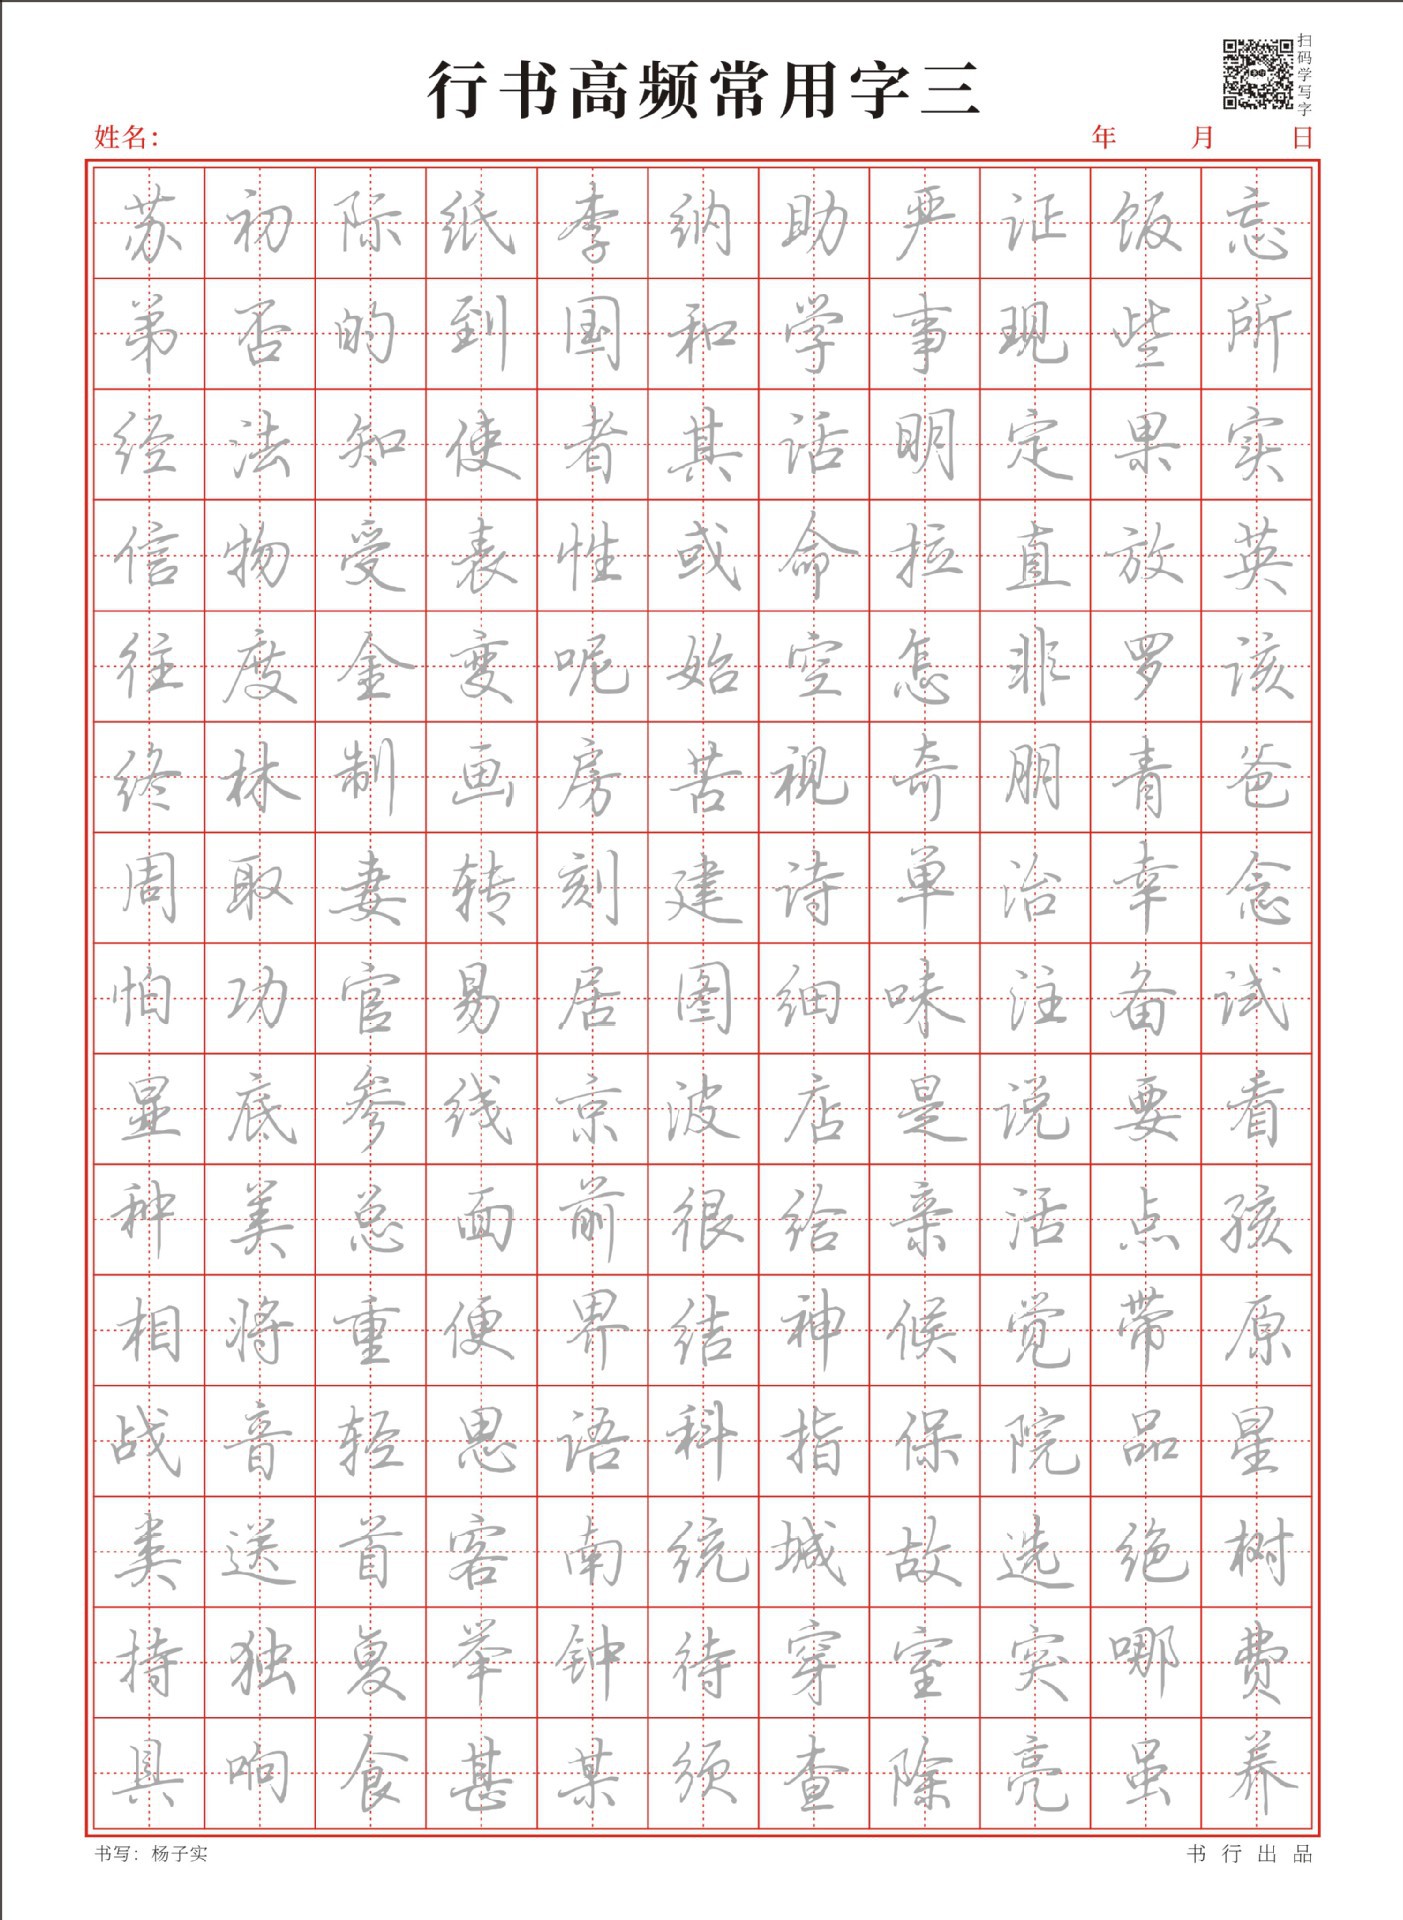 行书高频常用字三
扫码学写字
姓名： 年 月 日
苏初际纸李纳助严证饭忘
弟否的到国和学事现些所
经法知使者其话明定果实
信物受表性或命拉直放英
往度金变呢始空怎非罗该
终林制画房苦视奇朋青爸
周取妻转刻建诗单治幸念
怕功官易居图细味注备试
显底参线京波店是说要看
种美总面前很给亲活点孩
相将重便界结神候觉带原
战音轻思语科指保院品星
类送首客南统城故选绝树
持独复举钟待穿室突哪费
具响食甚某须查除亮虽养
书写：杨子实 书行出品